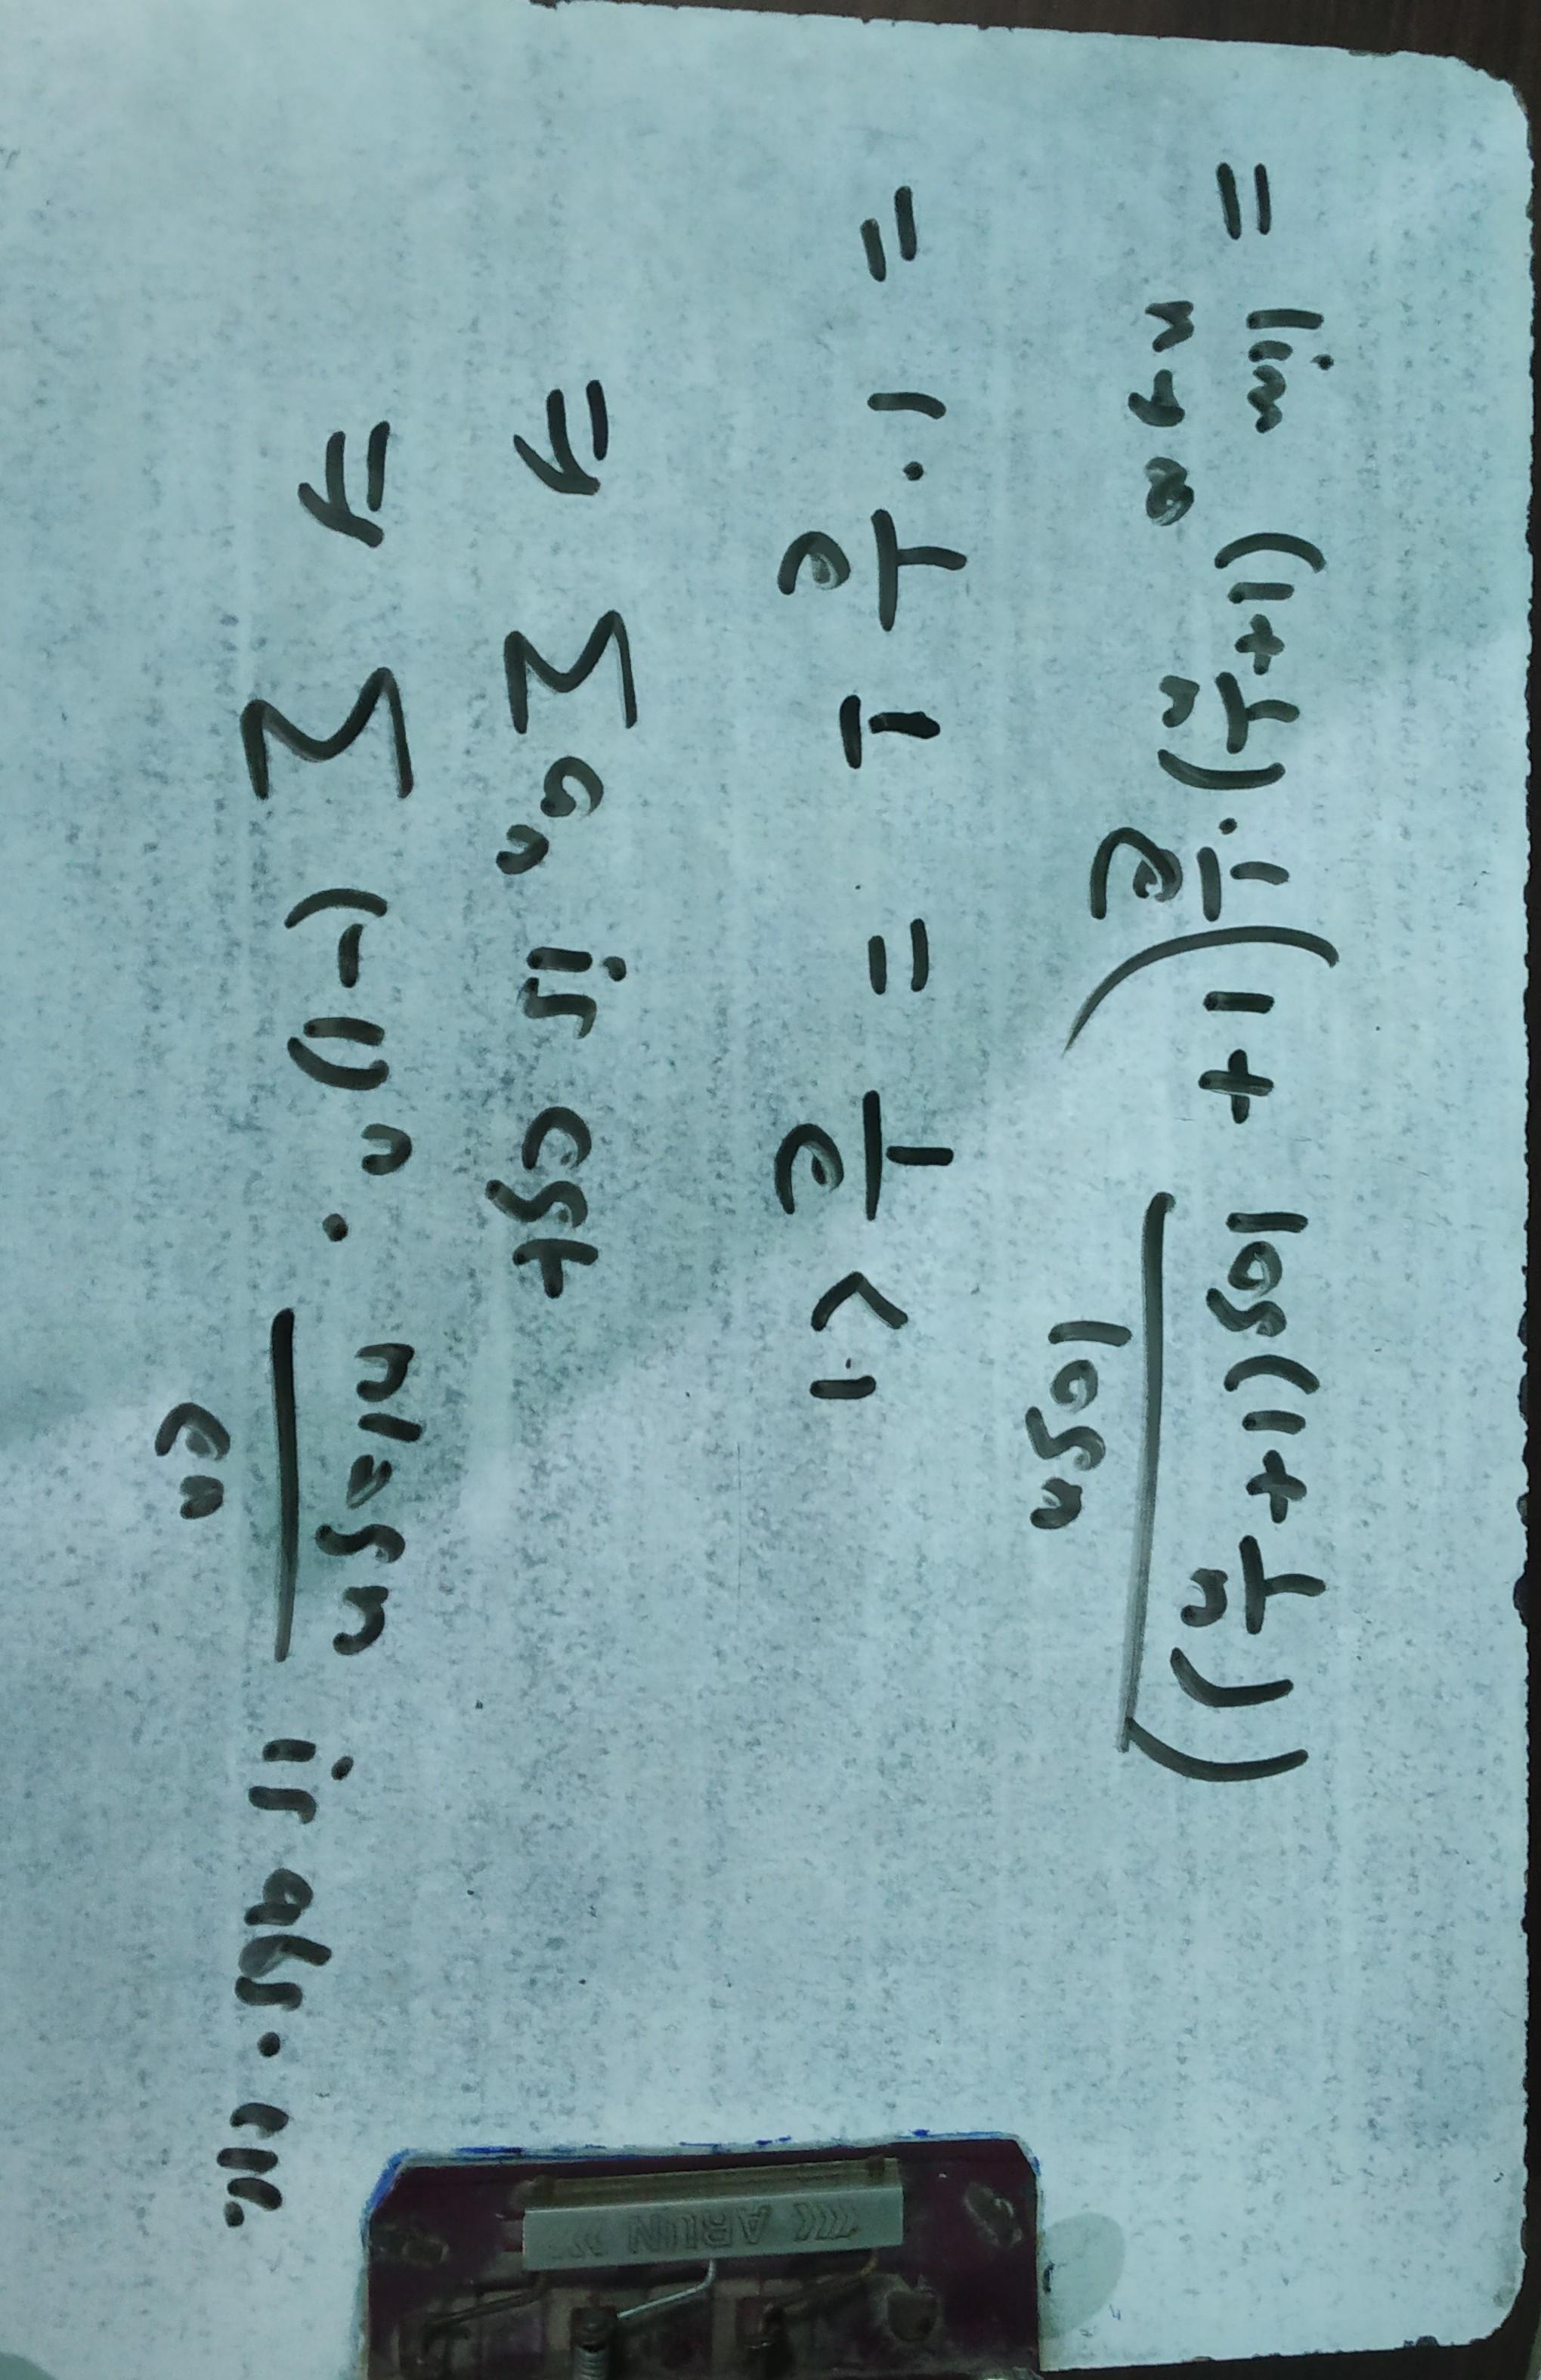 = lim n→∞ (1+1/n) · 1/e (1 + log(1+1/n)/log n)
= 1 · 1/e · 1 = 1/e < 1
⇒ Σ aₙ is cgt
⇒ Σ (-1)ⁿ · n log n / eⁿ is abs.
ARUN